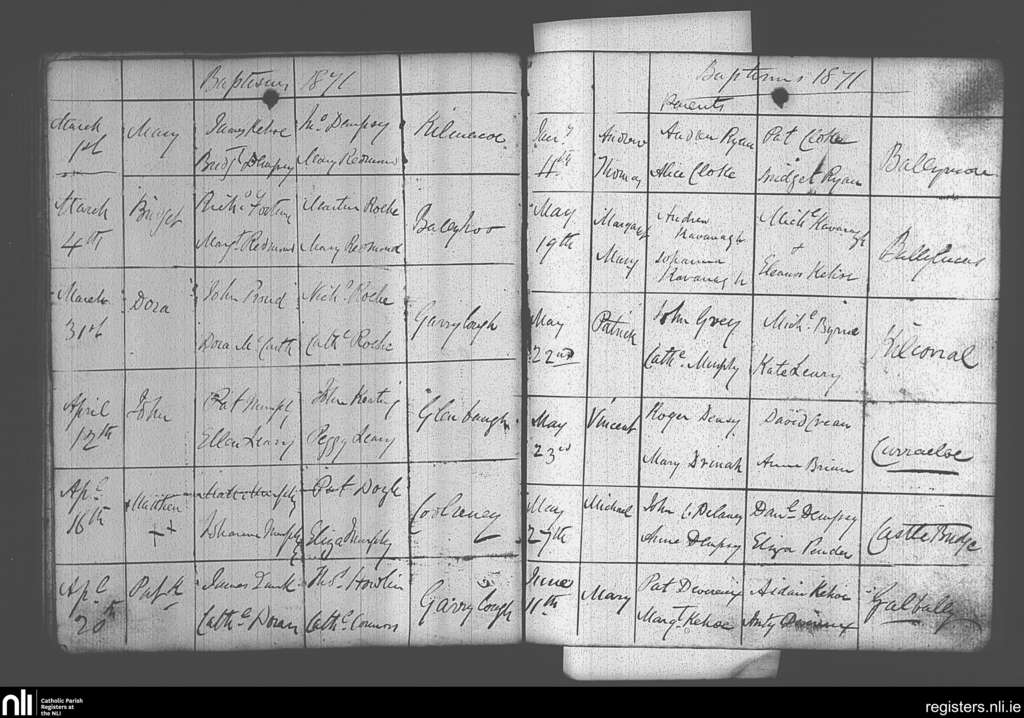 Baptisms 1871
March 1st Mary James Kehoe Mo. Dempsy
Bridt Dempsy Mary Redmond
March 4th Bridget Richd Martin Roche
Margt Redmond Mary Redmond
March 31st Dora John Nichs Roche Garrylough
Dora McCarth Cathe Roche
April 12th John Pat Murphy John
Ellen Leary Peggy Leary
Apl 16th Matthew Matt Murphy Pat Doyle
++ Johanna Murphy Eliza Murphy
Apl 20th Patk James Thos Howlin Garrylough
Cathe Doran Cathe Connors
Baptisms 1871
Parents
Andrew Andrew Ryan Pat Cloke
Thomas Alice Cloke Bridget Ryan
May 19th Margaret Andrew Kavanagh Michl Kavanagh
+
Mary Johanna Kavanagh Eleanor Kehoe
May 22nd Patrick John Grey Michl Byrne
Cathe Murphy Kate Leary
May 23rd Vincent Roger David Crean Curracloe
Mary Anne Brien
May 27th Michael John Delaney Danl Dempsey Castle Bridge
Anne Dempsy Eliza
June 11th Mary Pat Devereux Aidan Kehoe Galbally
Margt Kehoe Anty Devereux
nli Catholic Parish
Registers at
the NLI
registers.nli.ie